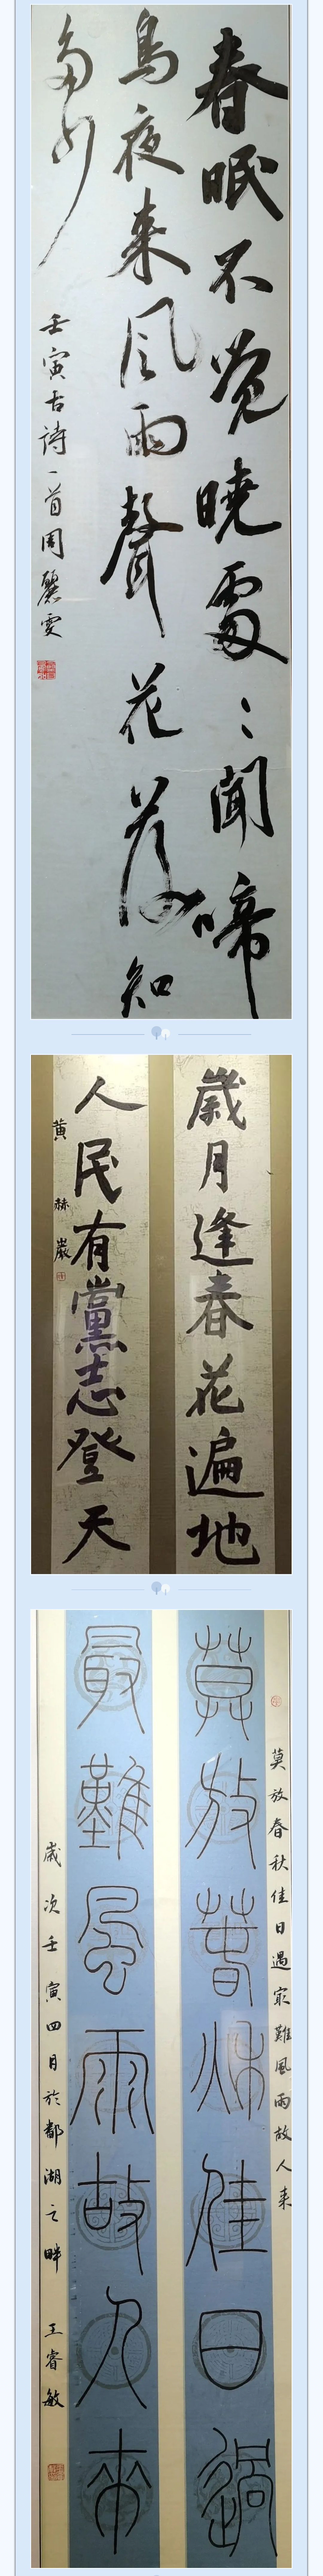 春眠不觉曉處々聞啼
鳥夜来风雨聲花落知
多少
壬寅古詩一首周麗雯
歲月逢春花遍地
人民有黨志登天
黄赫巖
莫放春秋佳日過最難風雨故人来
莫放春秋佳日過
最難風雨故人來
歲次壬寅四月於鄱湖之畔 王睿敏